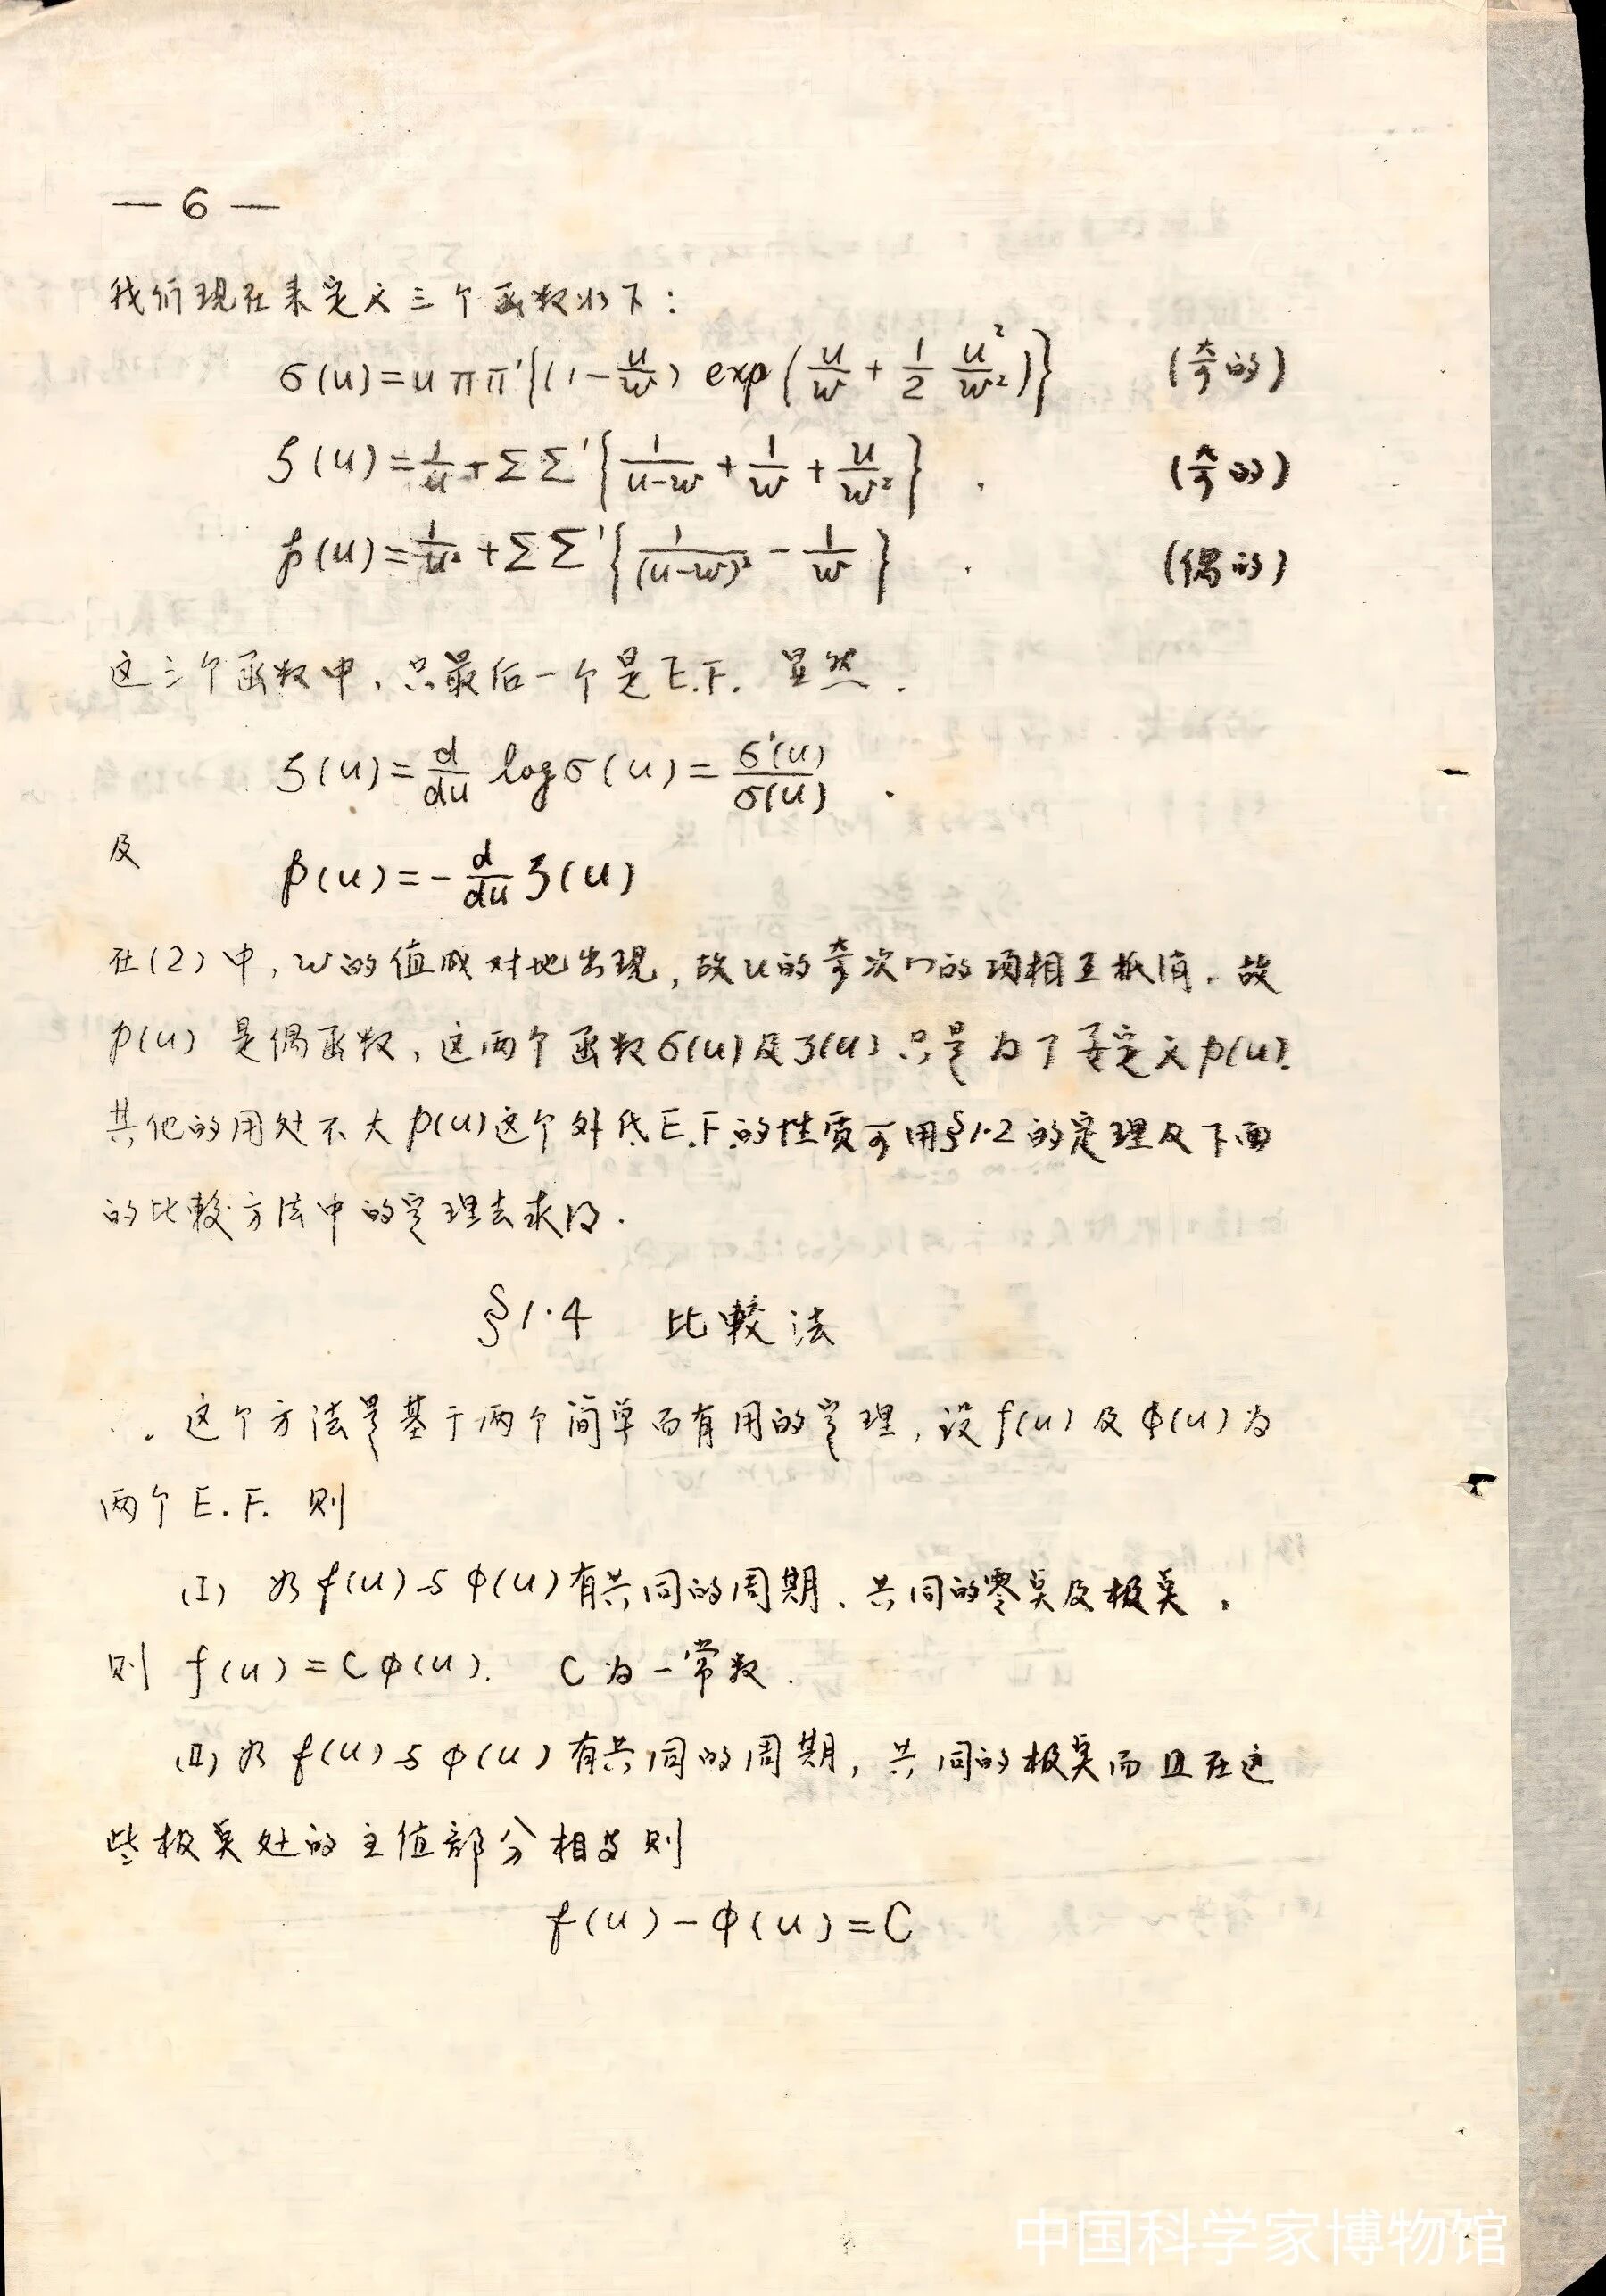 — 6 —
我们现在来定义三个函数如下：
σ(u)=u π π′{(1-u/w) exp(u/w + 1/2 u²/w²)} (奇的)
ζ(u)=1/u+ΣΣ′{1/(u-w) + 1/w + u/w²}. (奇的)
p(u)=1/u²+ΣΣ′{1/(u-w)² - 1/w}. (偶的)
这三个函数中，只最后一个是E.F. 显然.
ζ(u)=d/du logσ(u)=σ′(u)/σ(u).
及
p(u)=-d/du ζ(u)
在(2)中，w的值成对地出现，故u的奇次的项相互抵消．故
p(u)是偶函数，这两个函数σ(u)及ζ(u)只是为了要定义p(u).
其他的用处不大p(u)这个E.F.的性质可用§1·2的定理及下面
的比較方法中的定理去求得．
§1·4 比較法
这个方法是基于两个简单而有用的定理，设f(u)及φ(u)为
两个E.F. 则
(I) 如f(u)与φ(u)有共同的周期、共同的零点及极点．
则 f(u)=Cφ(u). C为一常数.
(II) 如f(u)与φ(u)有共同的周期，共同的极点而且在这
些极点处的主值部分相等则
f(u)-φ(u)=C
中国科学家博物馆